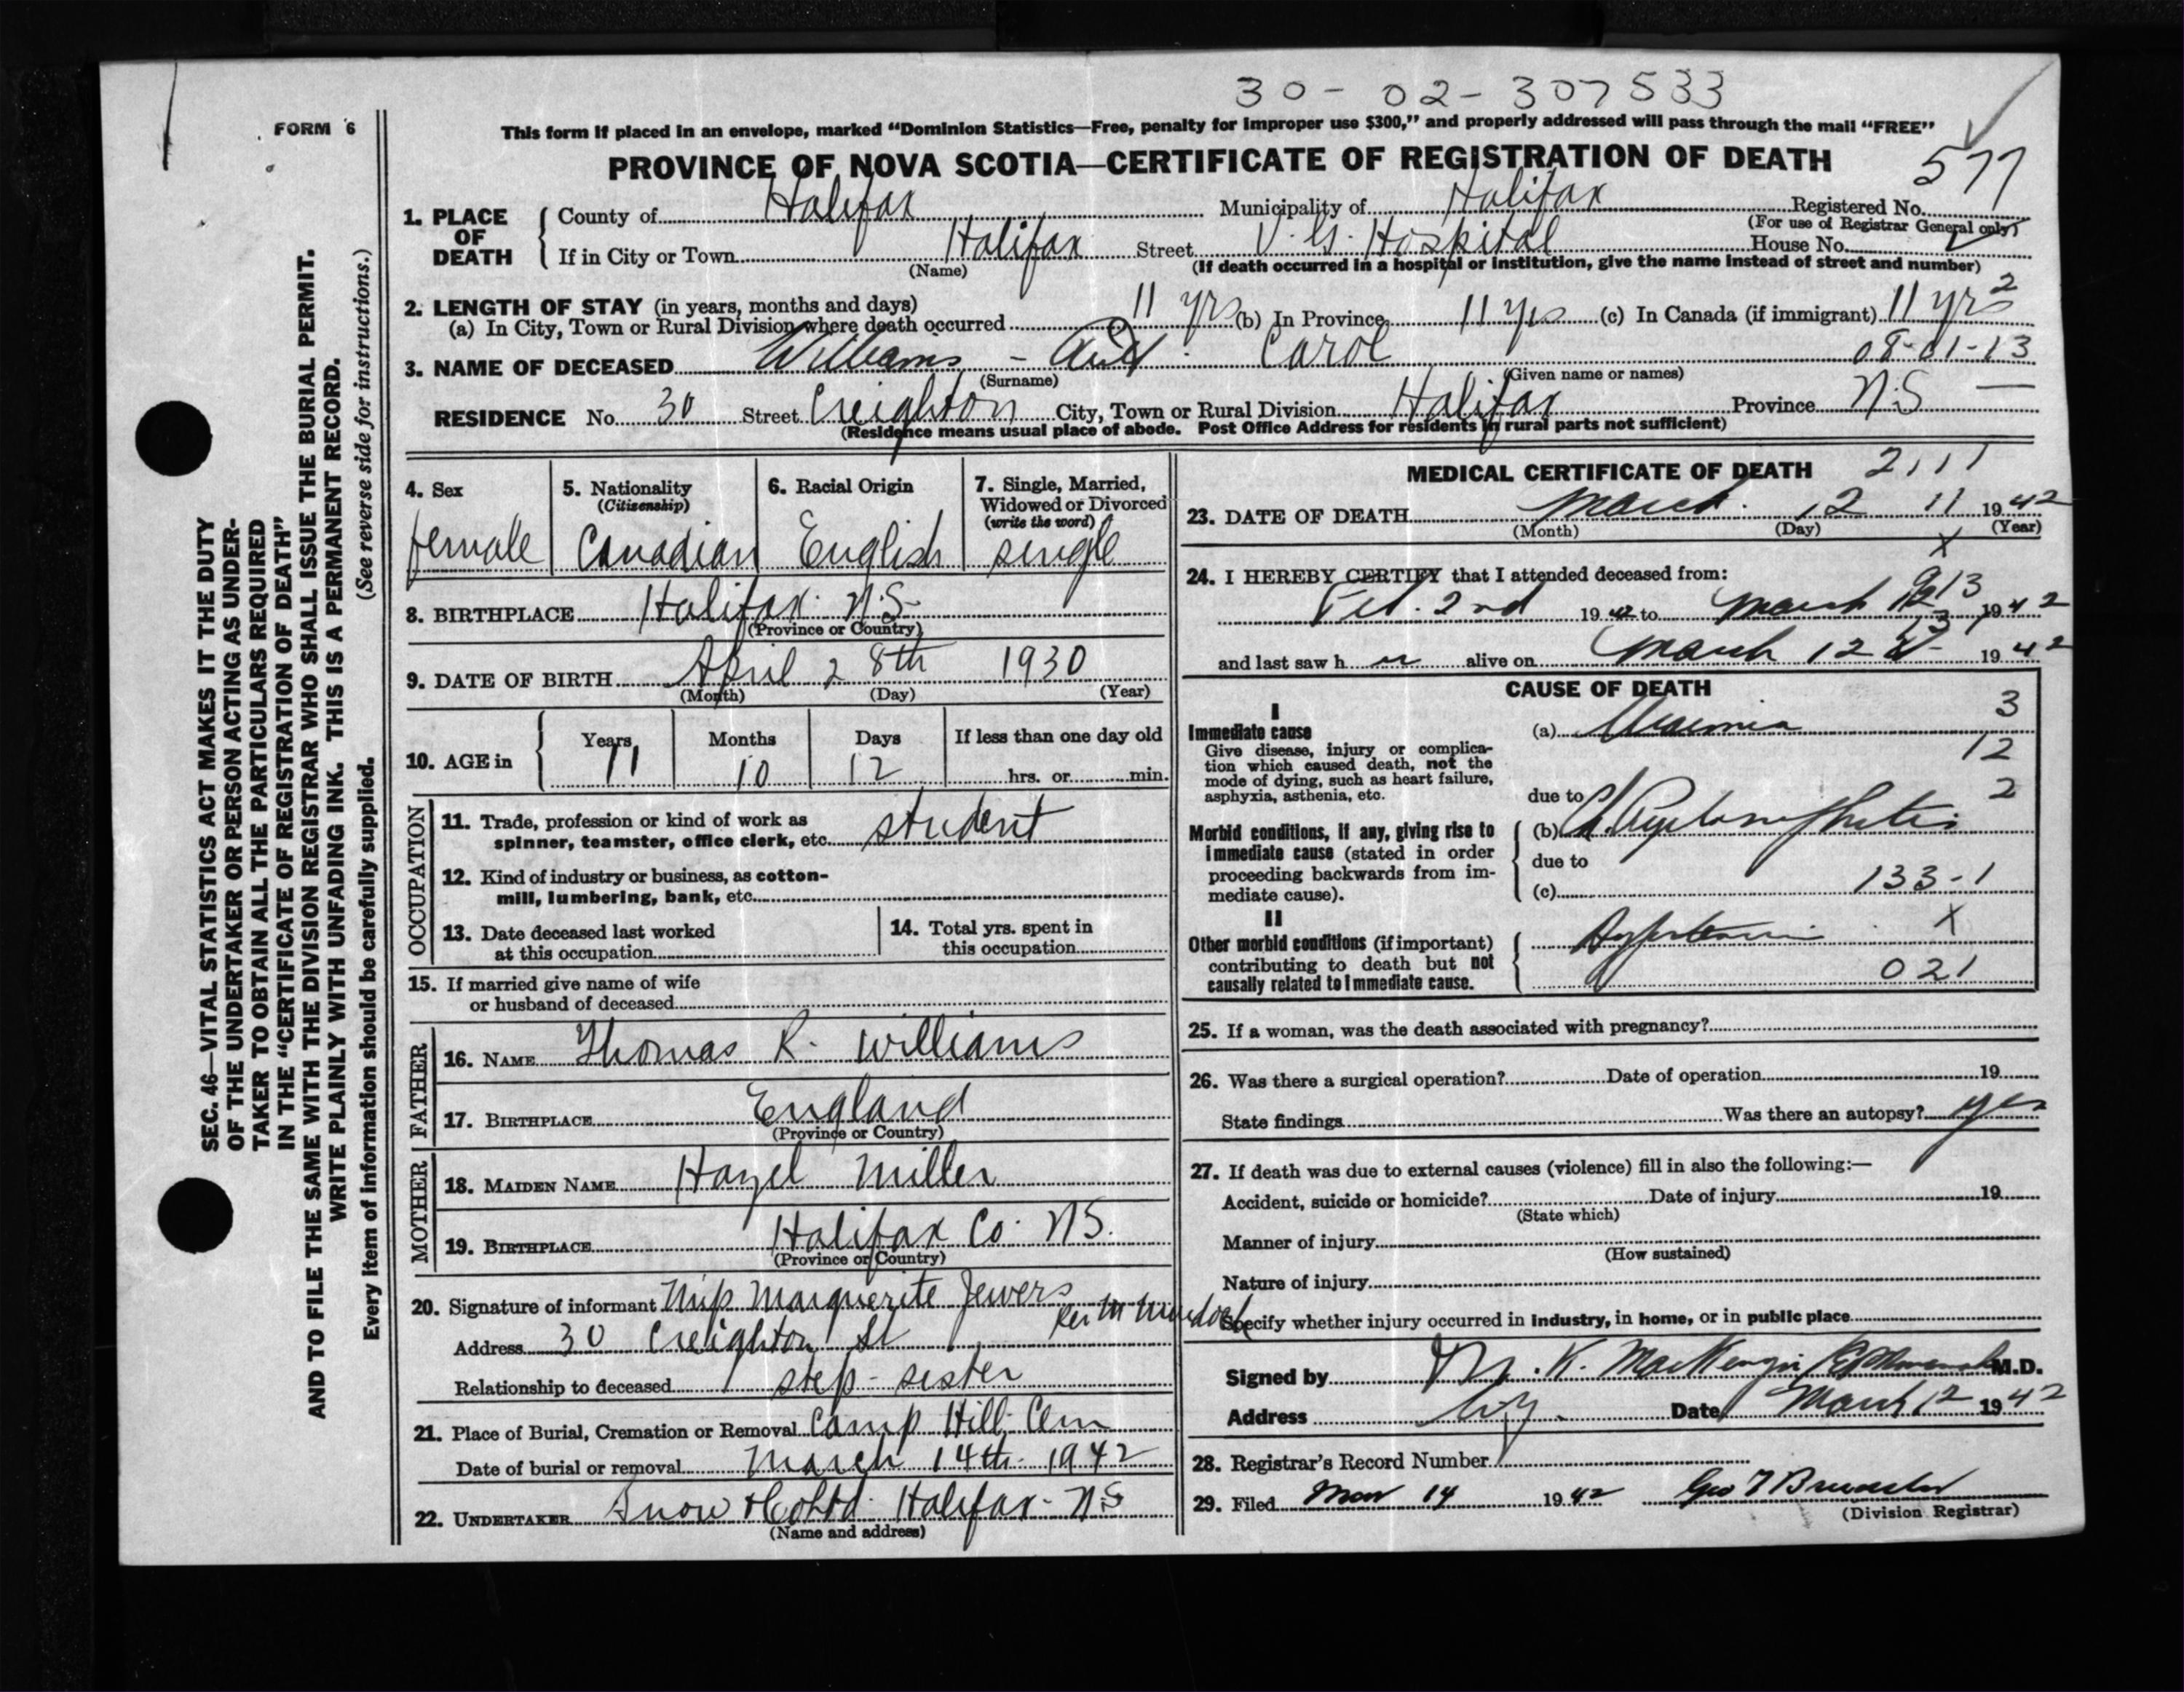 30-02-307533
FORM 6
This form if placed in an envelope, marked "Dominion Statistics—Free, penalty for improper use $300," and properly addressed will pass through the mail "FREE"
PROVINCE OF NOVA SCOTIA—CERTIFICATE OF REGISTRATION OF DEATH
577
1. PLACE OF DEATH
County of Halifax Municipality of Halifax Registered No.
(For use of Registrar General only)
If in City or Town Halifax Street V. G. Hospital House No.
(Name) (If death occurred in a hospital or institution, give the name instead of street and number)
2. LENGTH OF STAY (in years, months and days)
(a) In City, Town or Rural Division where death occurred 11 yrs (b) In Province 11 yrs (c) In Canada (if immigrant) 11 yrs 2
3. NAME OF DECEASED Williams - Carol 08-01-13
(Surname) (Given name or names)
RESIDENCE No. 30 Street Creighton City, Town or Rural Division Halifax Province N.S —
(Residence means usual place of abode. Post Office Address for residents in rural parts not sufficient)
4. Sex
female
5. Nationality
(Citizenship)
Canadian
6. Racial Origin
English
7. Single, Married,
Widowed or Divorced
(write the word)
single
8. BIRTHPLACE Halifax N.S.
(Province or Country)
9. DATE OF BIRTH April 28th 1930
(Month) (Day) (Year)
10. AGE in
Years Months Days If less than one day old
11 10 12 hrs. or min.
OCCUPATION
11. Trade, profession or kind of work as
spinner, teamster, office clerk, etc. student
12. Kind of industry or business, as cotton-
mill, lumbering, bank, etc.
13. Date deceased last worked
at this occupation
14. Total yrs. spent in
this occupation
15. If married give name of wife
or husband of deceased
FATHER
16. NAME Thomas R. Williams
17. BIRTHPLACE England
(Province or Country)
MOTHER
18. MAIDEN NAME Hazel Miller
19. BIRTHPLACE Halifax Co. N.S.
(Province or Country)
20. Signature of informant Miss Marguerite Jewers
Address 30 Creighton St
Relationship to deceased step-sister
21. Place of Burial, Cremation or Removal Camp Hill Cem
Date of burial or removal March 14th 1942
22. UNDERTAKER Snow & Co Ltd. Halifax - N.S
(Name and address)
MEDICAL CERTIFICATE OF DEATH 2111
23. DATE OF DEATH March 12 11 1942
(Month) (Day) (Year)
X
24. I HEREBY CERTIFY that I attended deceased from:
Feb. 2nd 1942 to March 1942
and last saw h er alive on March 12 1942
CAUSE OF DEATH
I
Immediate cause
Give disease, injury or complica-
tion which caused death, not the
mode of dying, such as heart failure,
asphyxia, asthenia, etc.
(a) Uraemia 3
12
due to 2
Morbid conditions, if any, giving rise to
immediate cause (stated in order
proceeding backwards from im-
mediate cause).
(b) Ch. Pyelonephritis
due to
(c) 133-1
II
Other morbid conditions (if important)
contributing to death but not
causally related to immediate cause.
Hypertension X
021
25. If a woman, was the death associated with pregnancy?
26. Was there a surgical operation? Date of operation 19
State findings Was there an autopsy? yes
27. If death was due to external causes (violence) fill in also the following:—
Accident, suicide or homicide? Date of injury 19
(State which)
Manner of injury
(How sustained)
Nature of injury
Specify whether injury occurred in industry, in home, or in public place
Signed by K. MacKenzie M.D.
Address Date March 12 1942
28. Registrar's Record Number
29. Filed Mar 14 1942 Geo
(Division Registrar)
SEC. 46—VITAL STATISTICS ACT MAKES IT THE DUTY
OF THE UNDERTAKER OR PERSON ACTING AS UNDER-
TAKER TO OBTAIN ALL THE PARTICULARS REQUIRED
IN THE "CERTIFICATE OF REGISTRATION OF DEATH"
AND TO FILE THE SAME WITH THE DIVISION REGISTRAR WHO SHALL ISSUE THE BURIAL PERMIT.
WRITE PLAINLY WITH UNFADING INK. THIS IS A PERMANENT RECORD.
Every item of information should be carefully supplied. (See reverse side for instructions.)